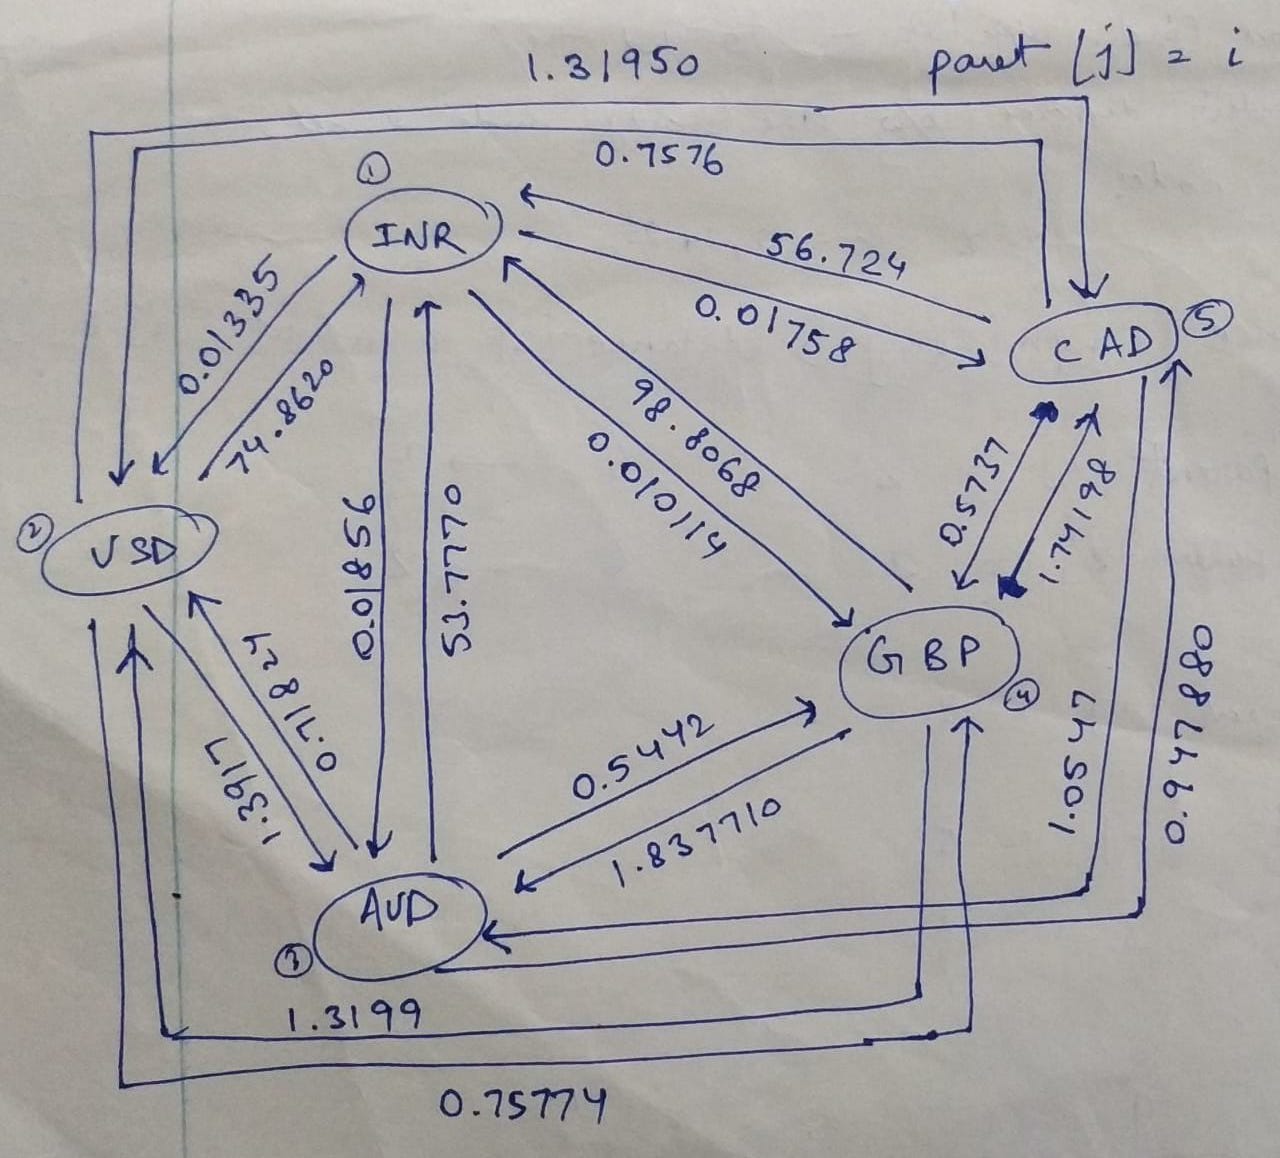 1.31950
paret [j] = i
0.7576
1
INR
56.724
0.01758
CAD
5
0.01335
74.8620
98.8068
0.010114
0.5737
1.74198
2
USD
0.01856
53.7770
GBP
4
0.71824
1.3917
0.5442
1.837710
1.0547
0.947880
AUD
3
1.3199
0.75774